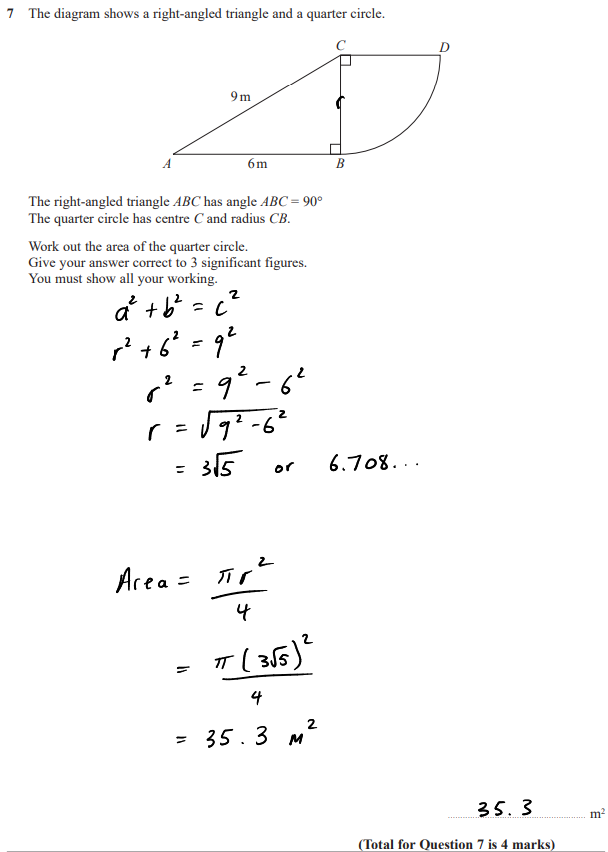 7 The diagram shows a right-angled triangle and a quarter circle.
C D
9 m
r
A 6 m B
The right-angled triangle ABC has angle ABC = 90°
The quarter circle has centre C and radius CB.
Work out the area of the quarter circle.
Give your answer correct to 3 significant figures.
You must show all your working.
a² + b² = c²
r² + 6² = 9²
r² = 9² - 6²
r = √(9² - 6²)
= 3√5 or 6.708...
Area = πr²/4
= π(3√5)²/4
= 35.3 m²
35.3 m²
(Total for Question 7 is 4 marks)